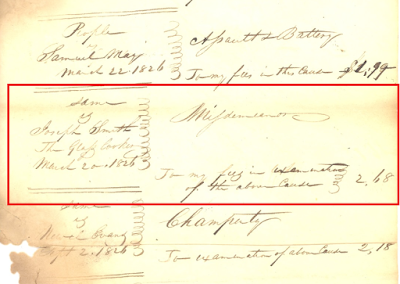 People
vs
Samuel May
March 22 1826
Assault & Battery
To my fees in this Cause $1,99
Same
vs
Joseph Smith
The Glass Looker
March 20, 1826
Misdemeanor
To my fees in examination
of the above Cause 2,68
Same
vs
Newel Evans
Sept 2, 1826
Champerty
To examination of above Cause 2,18